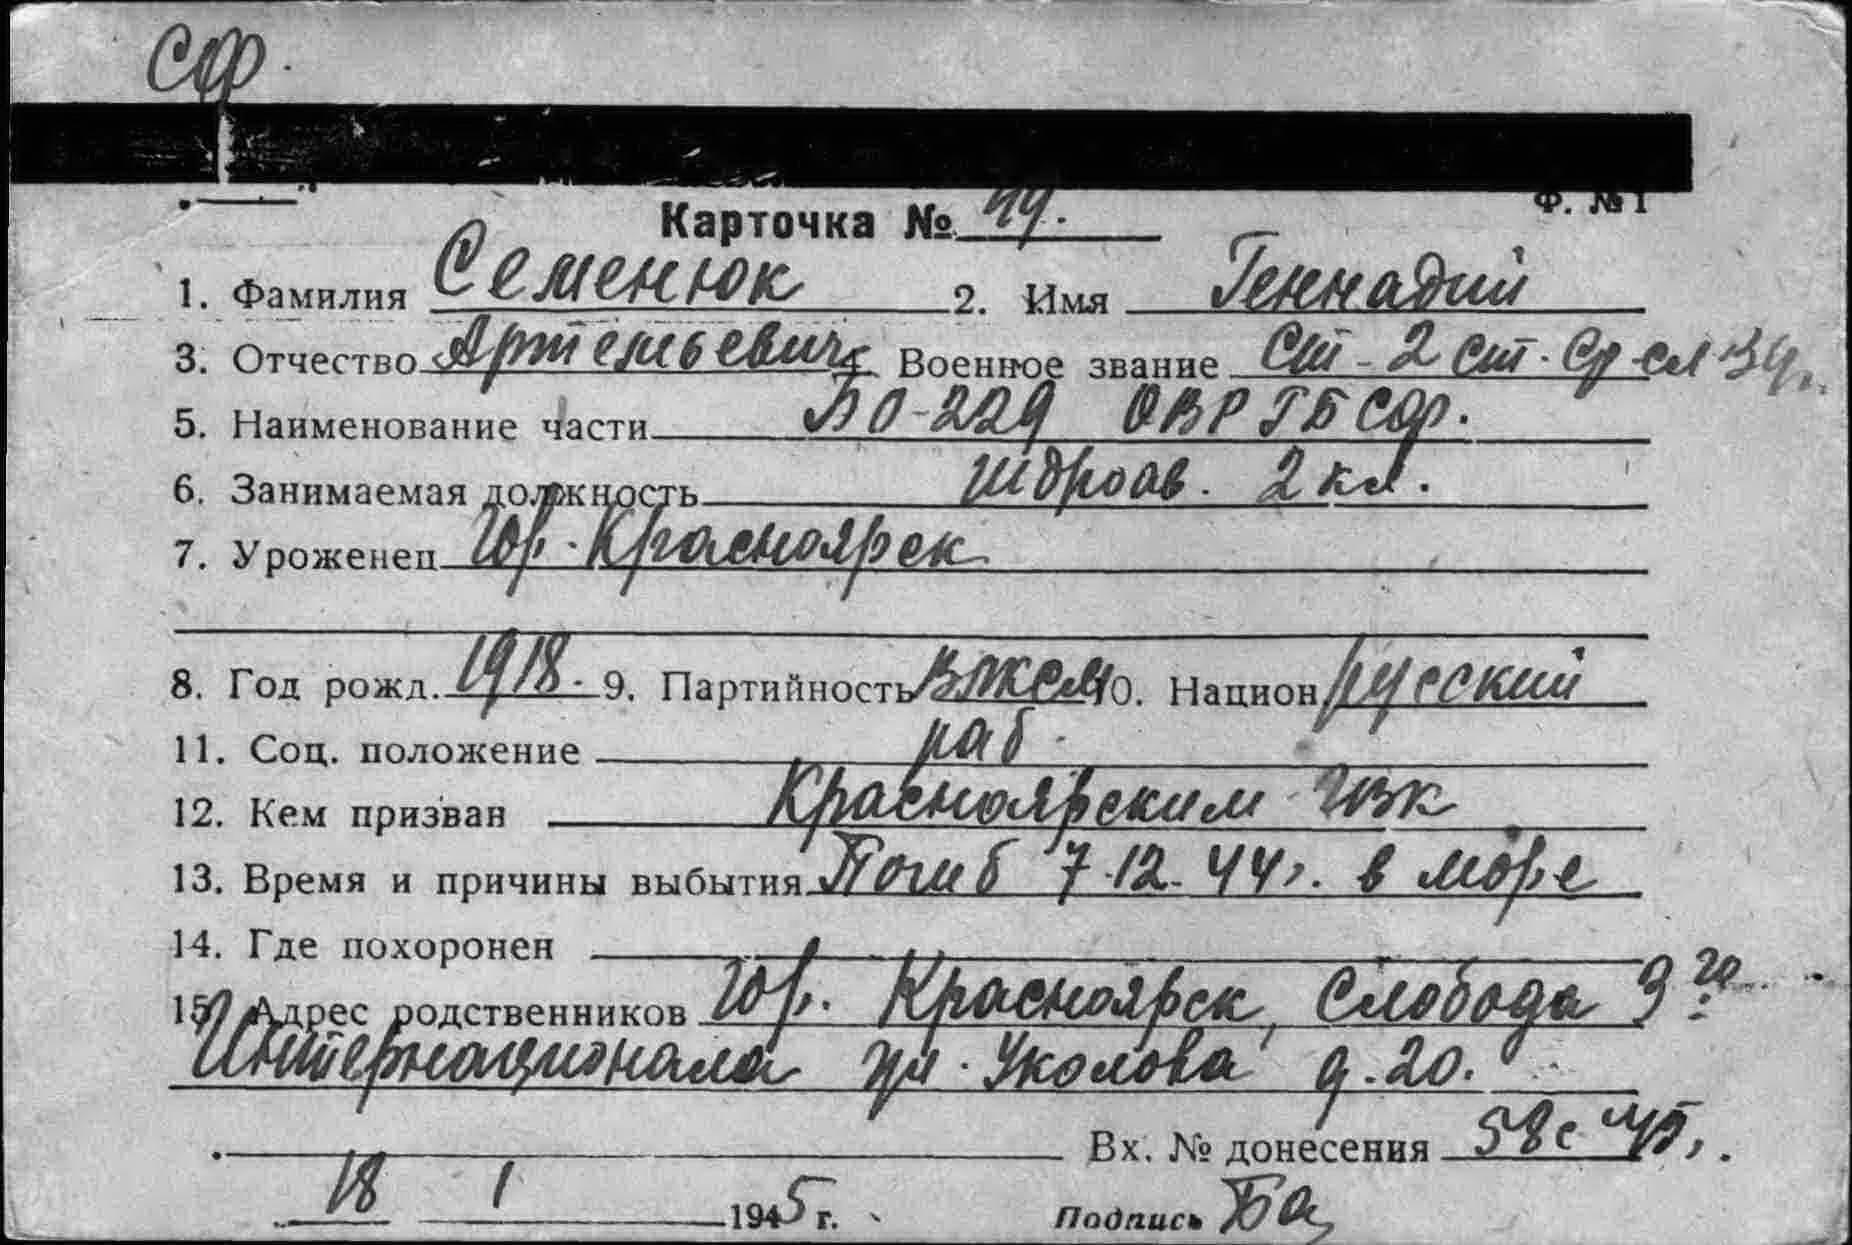 СФ.
Ф. №1
Карточка № 44.
1. Фамилия Семенюк 2. Имя Геннадий
3. Отчество Артемьевич Военное звание Ст-2 ст. Ср-сл 39г.
5. Наименование части БО-229 ОВР ГБ СФ.
6. Занимаемая должность Гидроак. 2 кл.
7. Уроженец гор. Красноярск
8. Год рожд. 1918. 9. Партийность ВЛКСМ 10. Национ русский
11. Соц. положение раб.
12. Кем призван Красноярским ГВК
13. Время и причины выбытия Погиб 7.12.44г. в море
14. Где похоронен
15. Адрес родственников гор. Красноярск, Слобода 3го
Интернационала ул. Уколова д. 20.
Вх. № донесения 58с 45г.
18 1 1945 г. Подпись